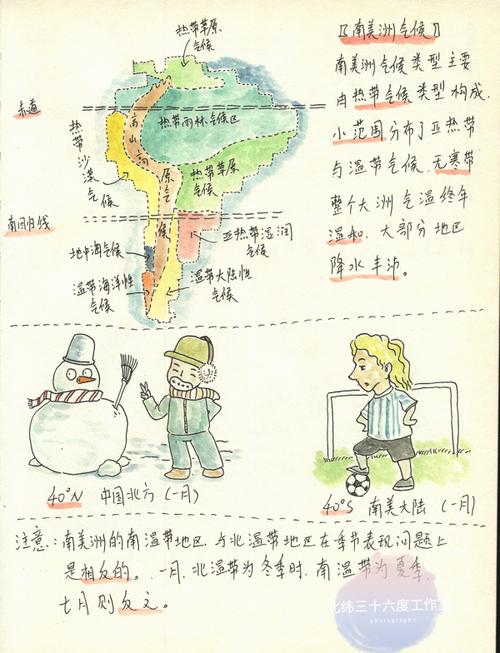 热带草原
气候
赤道
热带雨林气候区
高山高原气候
热带沙漠
气候
热带草原
气候
南回归线
地中海气候
亚热带湿润
气候
温带海洋性
气候
温带大陆性
气候
【南美洲气候】
南美洲气候类型主要
由热带气候类型构成.
小范围分布了亚热带
与温带气候.无寒带
整个大洲气温终年
温和.大部分地区
降水丰沛。
40°N 中国北方(一月)
40°S 南美大陆(一月)
注意:南美洲的南温带地区与北温带地区在季节表现问题上
是相反的。一月,北温带为冬季时.南温带为夏季.
七月则反之。
北纬三十六度工作室
photography